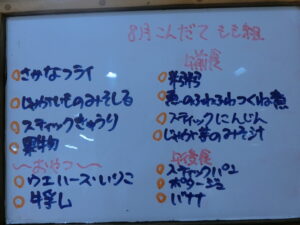 8月こんだて もも組
さかなフライ
じゃがいものみそしる
スティックきゅうり
果物
〜おやつ〜
ウエハース・いりこ
牛乳
午前食
軟粥
魚のふわふわつくね煮
スティックにんじん
じゃが芋のみそ汁
午後食
スティックパン
ポタージュ
バナナ